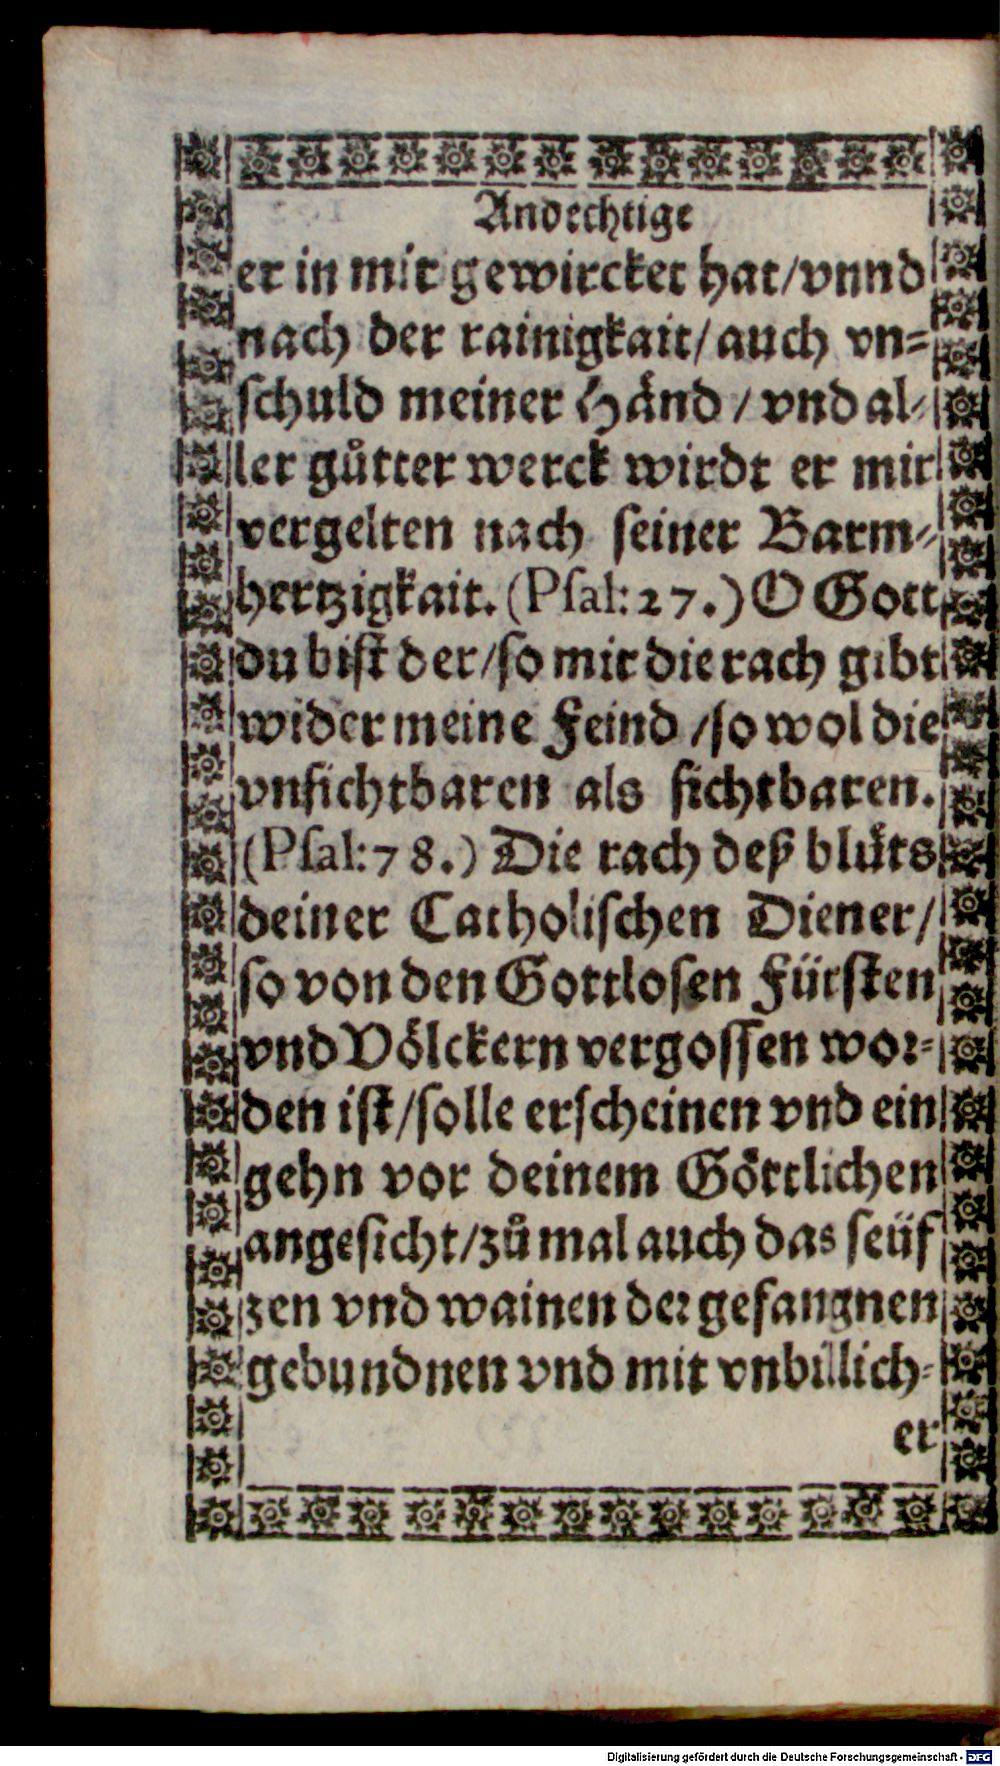 Andechtige
er in mir gewircket hat/vnnd
nach der rainigkait/auch vn=
schuld meiner Händ / vnd al=
ler gůtter werck wirdt er mir
vergelten nach seiner Barm=
hertzigkait. (Psal: 27.) O Gott
du bist der/so mir die rach gibt
wider meine Feind /so wol die
vnsichtbaren als sichtbaren.
(Psal: 78.) Die rach deß blůts
deiner Catholischen Diener/
so von den Gottlosen Fürsten
vnd Völckern vergossen wor=
den ist/solle erscheinen vnd ein
gehn vor deinem Göttlichen
angesicht/zů mal auch das seüf
zen vnd wainen der gefangnen
gebundnen vnd mit vnbillich=
er
Digitalisierung gefördert durch die Deutsche Forschungsgemeinschaft - DFG